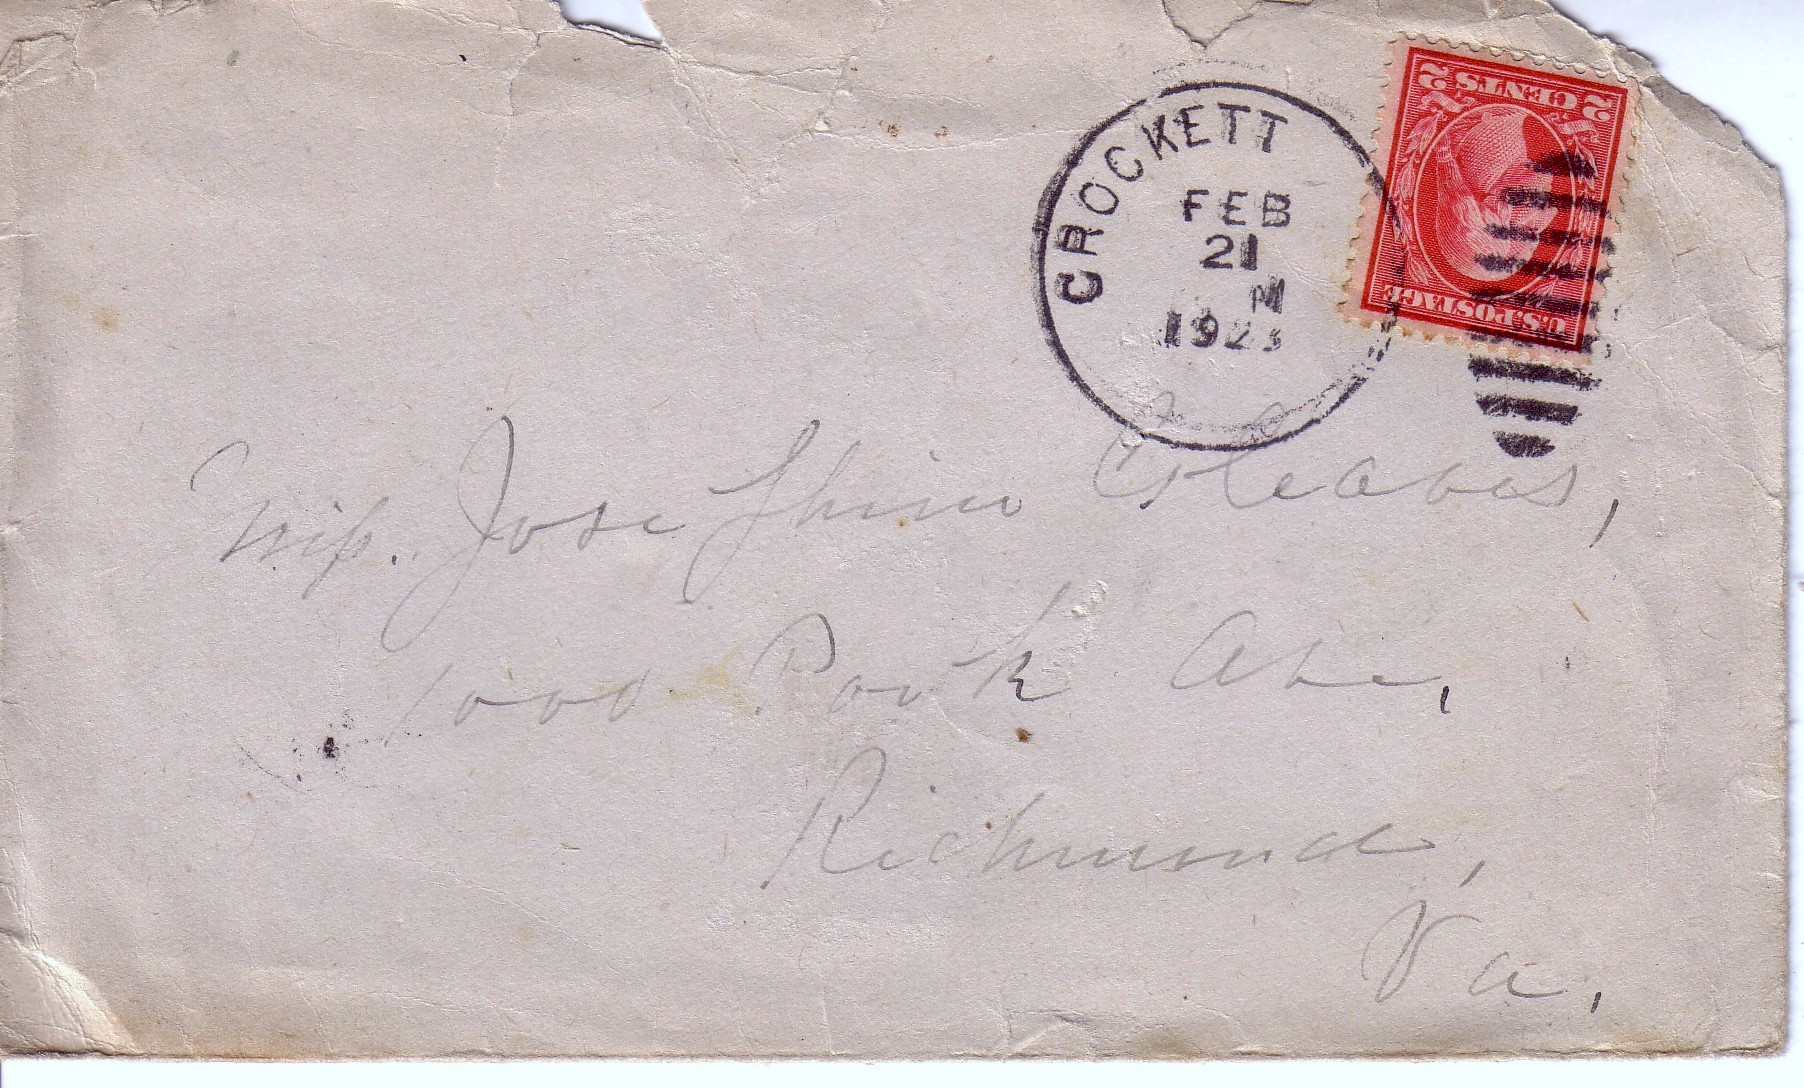 CROCKETT
FEB
21
M
1923
2 CENTS 2
U.S. POSTAGE
Miss. Josephine Cleaves,
1000 Park Ave,
Richmond,
Va.